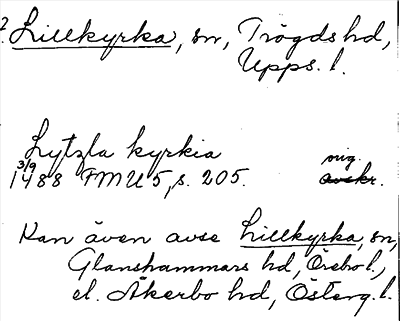 2. Lillkyrka, sn, Trögds hd,
Upps. l.
Lytzla kyrkia
3/9 orig.
1488 FMU 5, s. 205. avskr.
Kan även avse Lillkyrka, sn,
Glanshammars hd, Örebro l.,
el. Åkerbo hd, Österg. l.